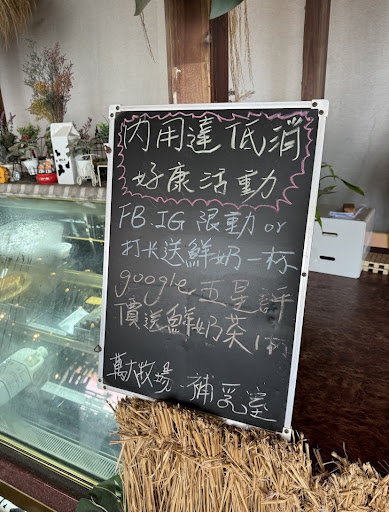 內用達低消
好康活動
FB.IG 限動 or
打卡送鮮奶一杯
google 五星評
價送鮮奶茶1杯
萬大牧場 - 補乳室